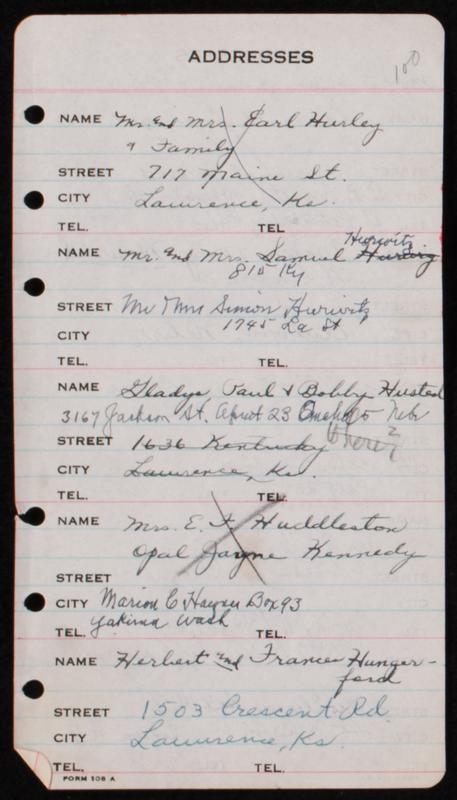 100
ADDRESSES
NAME Mr. and Mrs. Earl Hurley
& Family
STREET 717 Maine St.
CITY Lawrence, Ks.
TEL. TEL
NAME Mr. and Mrs. Samuel Hurwitz
815 Ky
STREET Mr & Mrs Simon Hurwitz
1745 La St
CITY
TEL. TEL.
NAME Gladys, Paul & Bobby Husted
3167 Jackson St. Apart 23 Omaha Nebr
STREET 1636 Kentucky where?
CITY Lawrence, Ks.
TEL. TEL.
NAME Mrs. E. F. Huddleston
Opal Jayne Kennedy
STREET
CITY Marion C Box 93
Yakima Wash
TEL. TEL.
NAME Herbert and Frances Hunger-
ford
STREET 1503 Crescent Rd.
CITY Lawrence, Ks.
TEL. TEL.
FORM 106 A